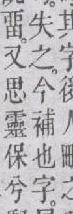 其字後人刪之
失之今補也字
又思靈保兮